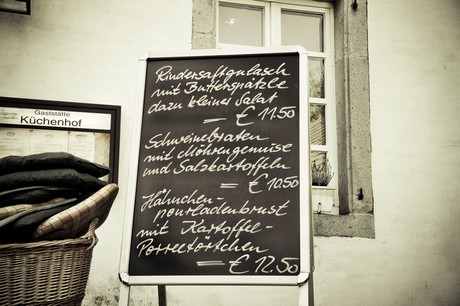 Rindersaftgulasch
mit Butterspätzle
dazu kleiner Salat
= € 11.50
Schweinebraten
mit Möhrengemüse
und Salzkartoffeln
= € 10.50
Hähnchen-
pouladenbrust
mit Kartoffel-
Porreetörtchen
= € 12.50
Gaststätte
Küchenhof